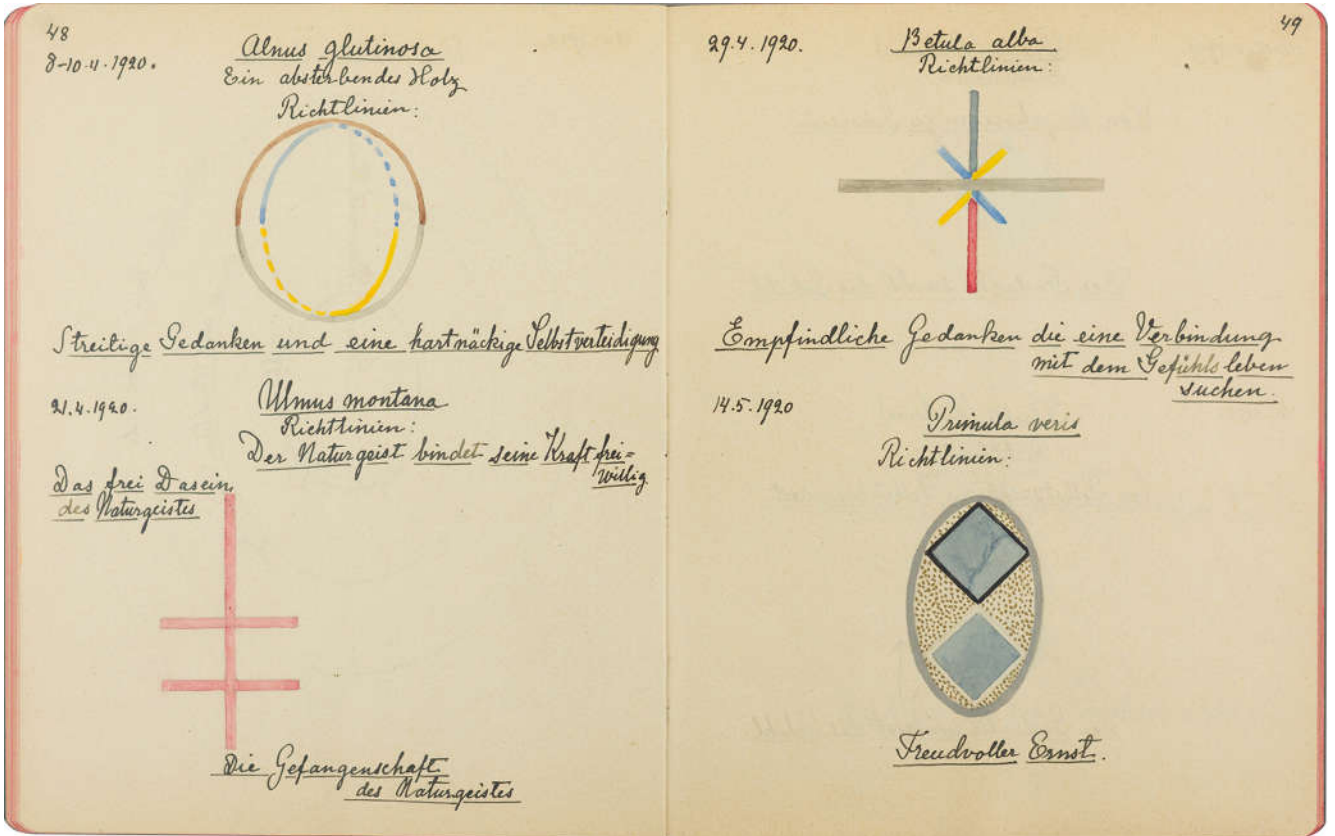 48
8-10.4.1920.
Alnus glutinosa
Ein absterbendes Holz
Richtlinien:
Streitige Gedanken und eine hartnäckige Selbstverteidigung
21.4.1920.
Ulmus montana
Richtlinien:
Der Naturgeist bindet seine Kraft frei=
willig
Das frei Dasein
des Naturgeistes
Die Gefangenschaft
des Naturgeistes
49
29.4.1920.
Betula alba
Richtlinien:
Empfindliche Gedanken die eine Verbindung
mit dem Gefühlsleben
suchen.
14.5.1920
Primula veris
Richtlinien:
Freudvoller Ernst.